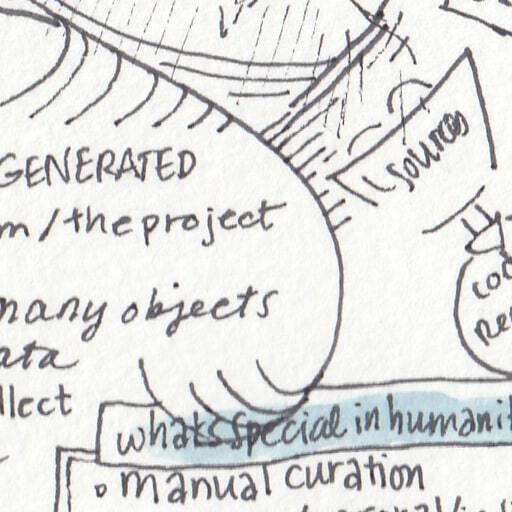 GENERATED
m/the project
many objects
ata
llect
sources
whats special in humanit
• manual curation